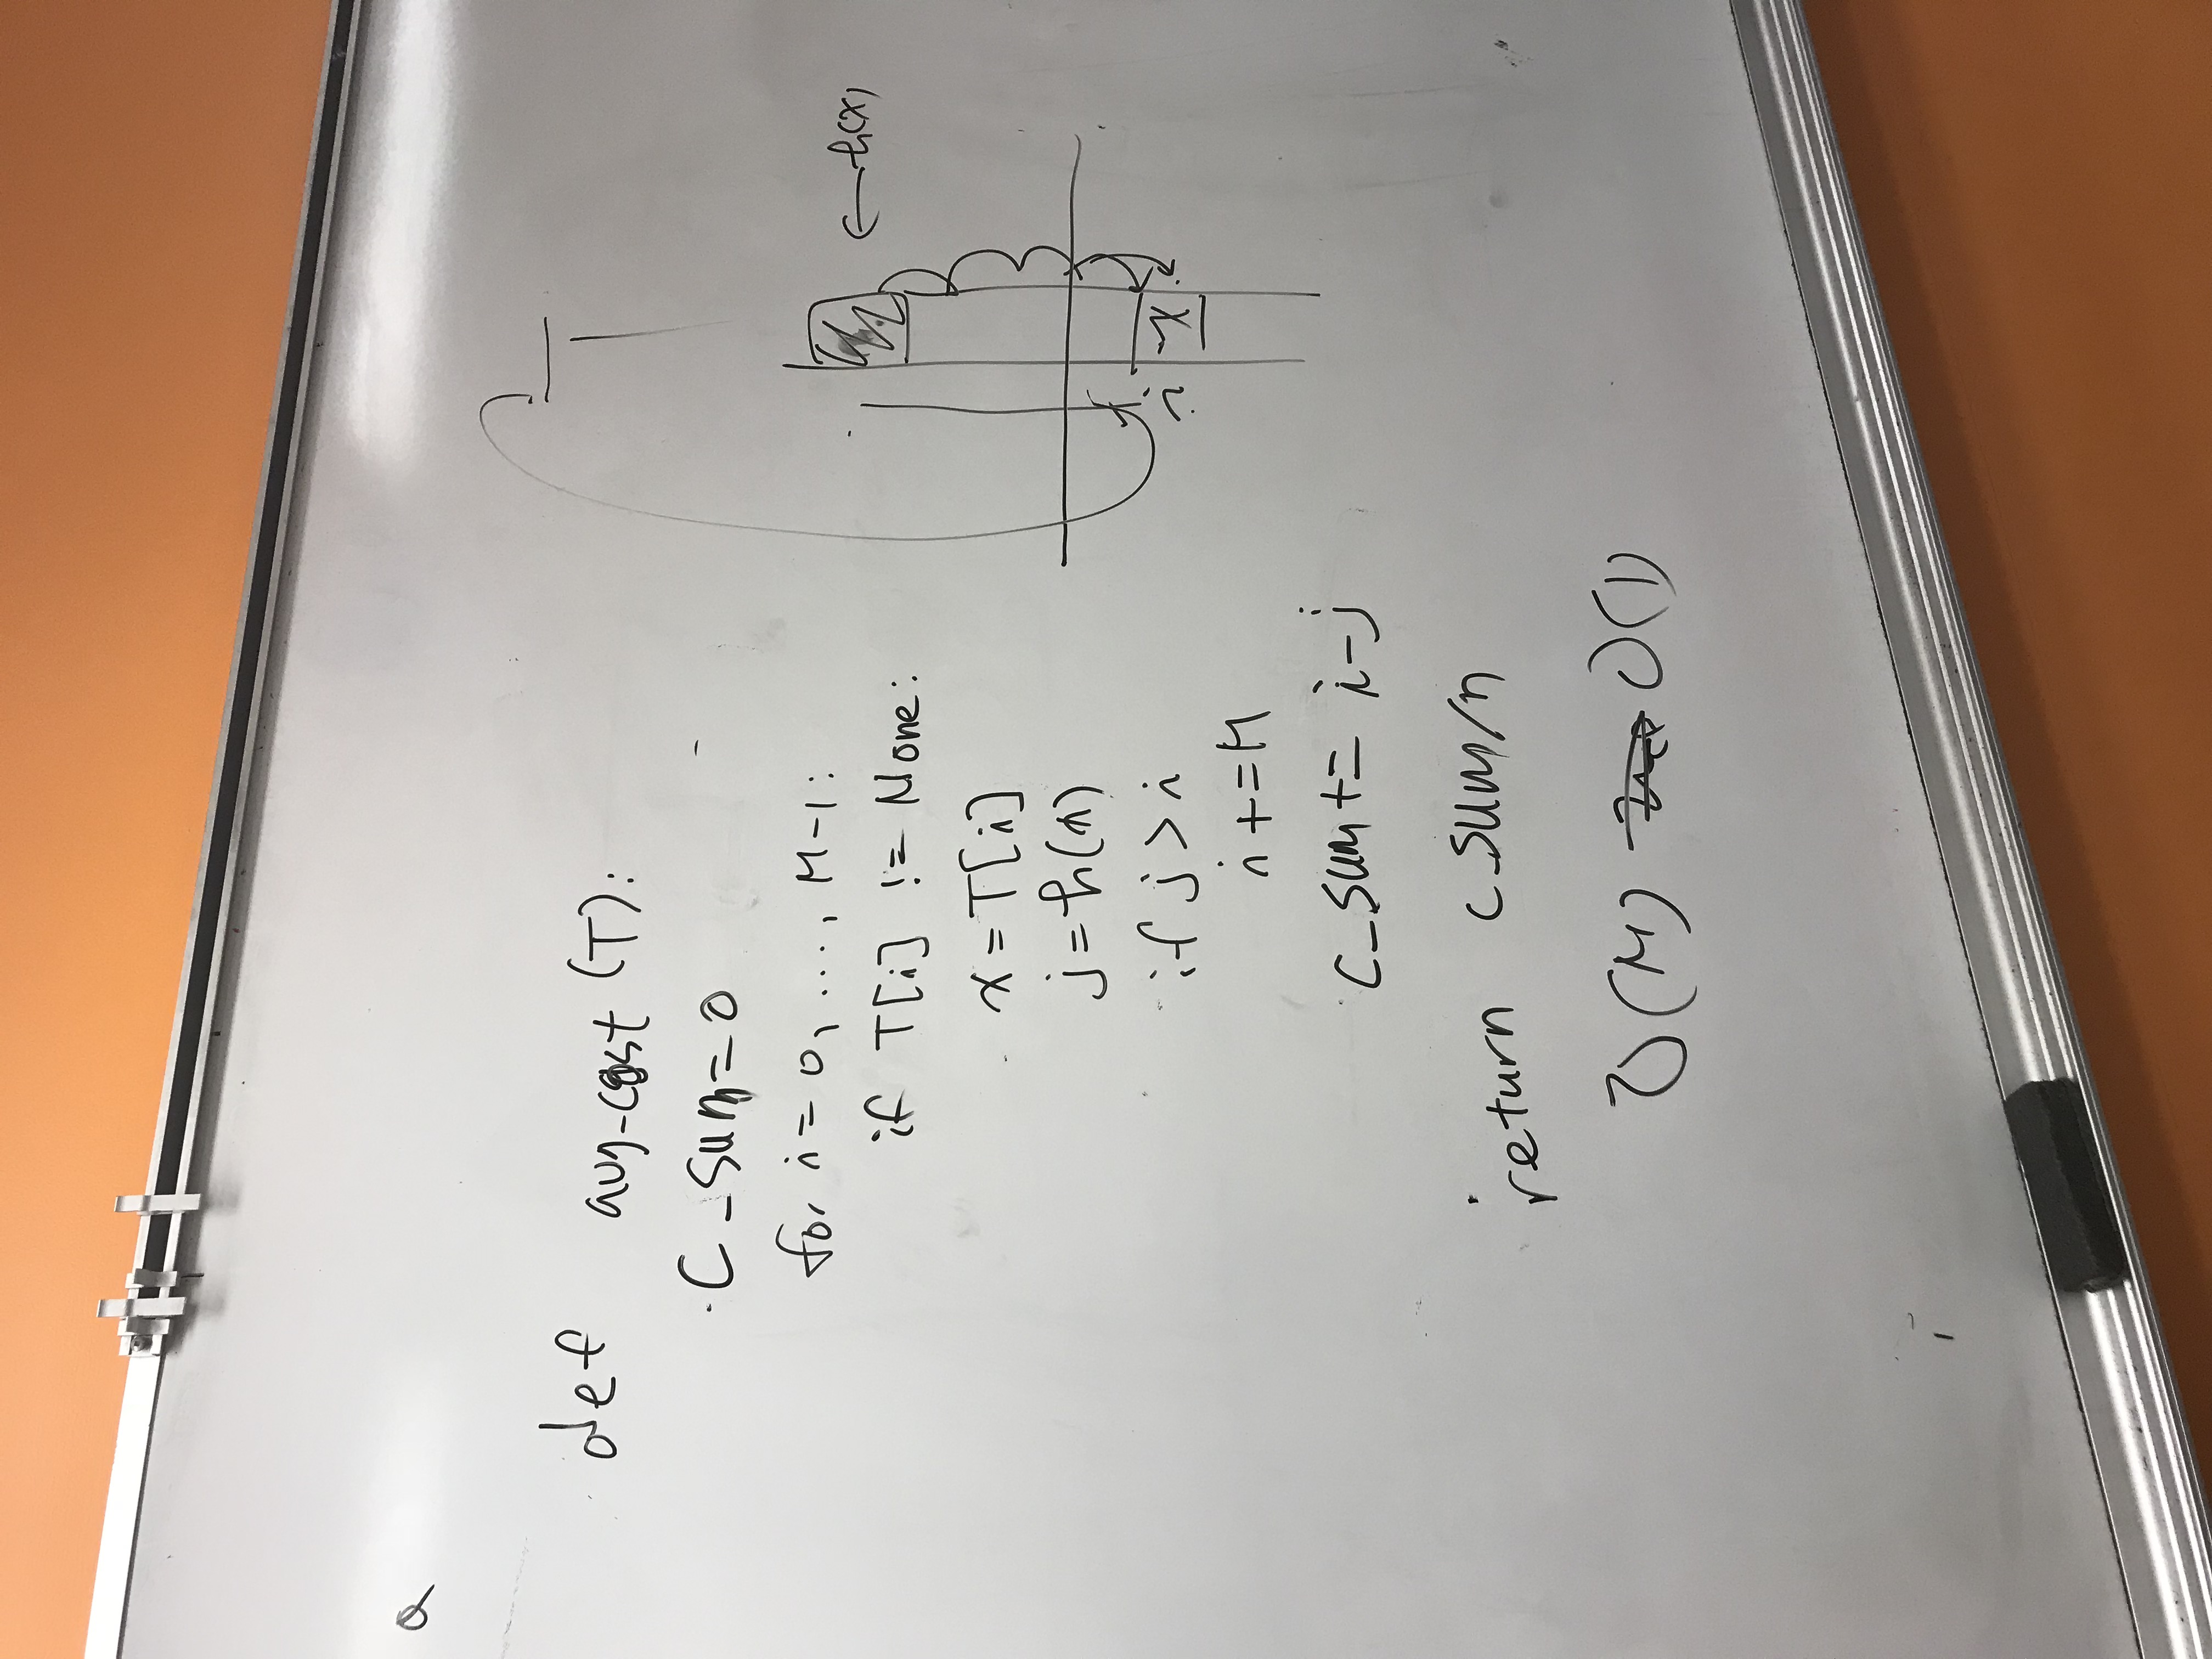 a
def avg-cost (T):
C_sum=0
for i = 0, ..., M-1:
if T[i] != None:
x = T[i]
j = h(x)
if j > i
i += M
c_sum += i-j
return c_sum/n
O(M) O(1)
← h(x)
i x